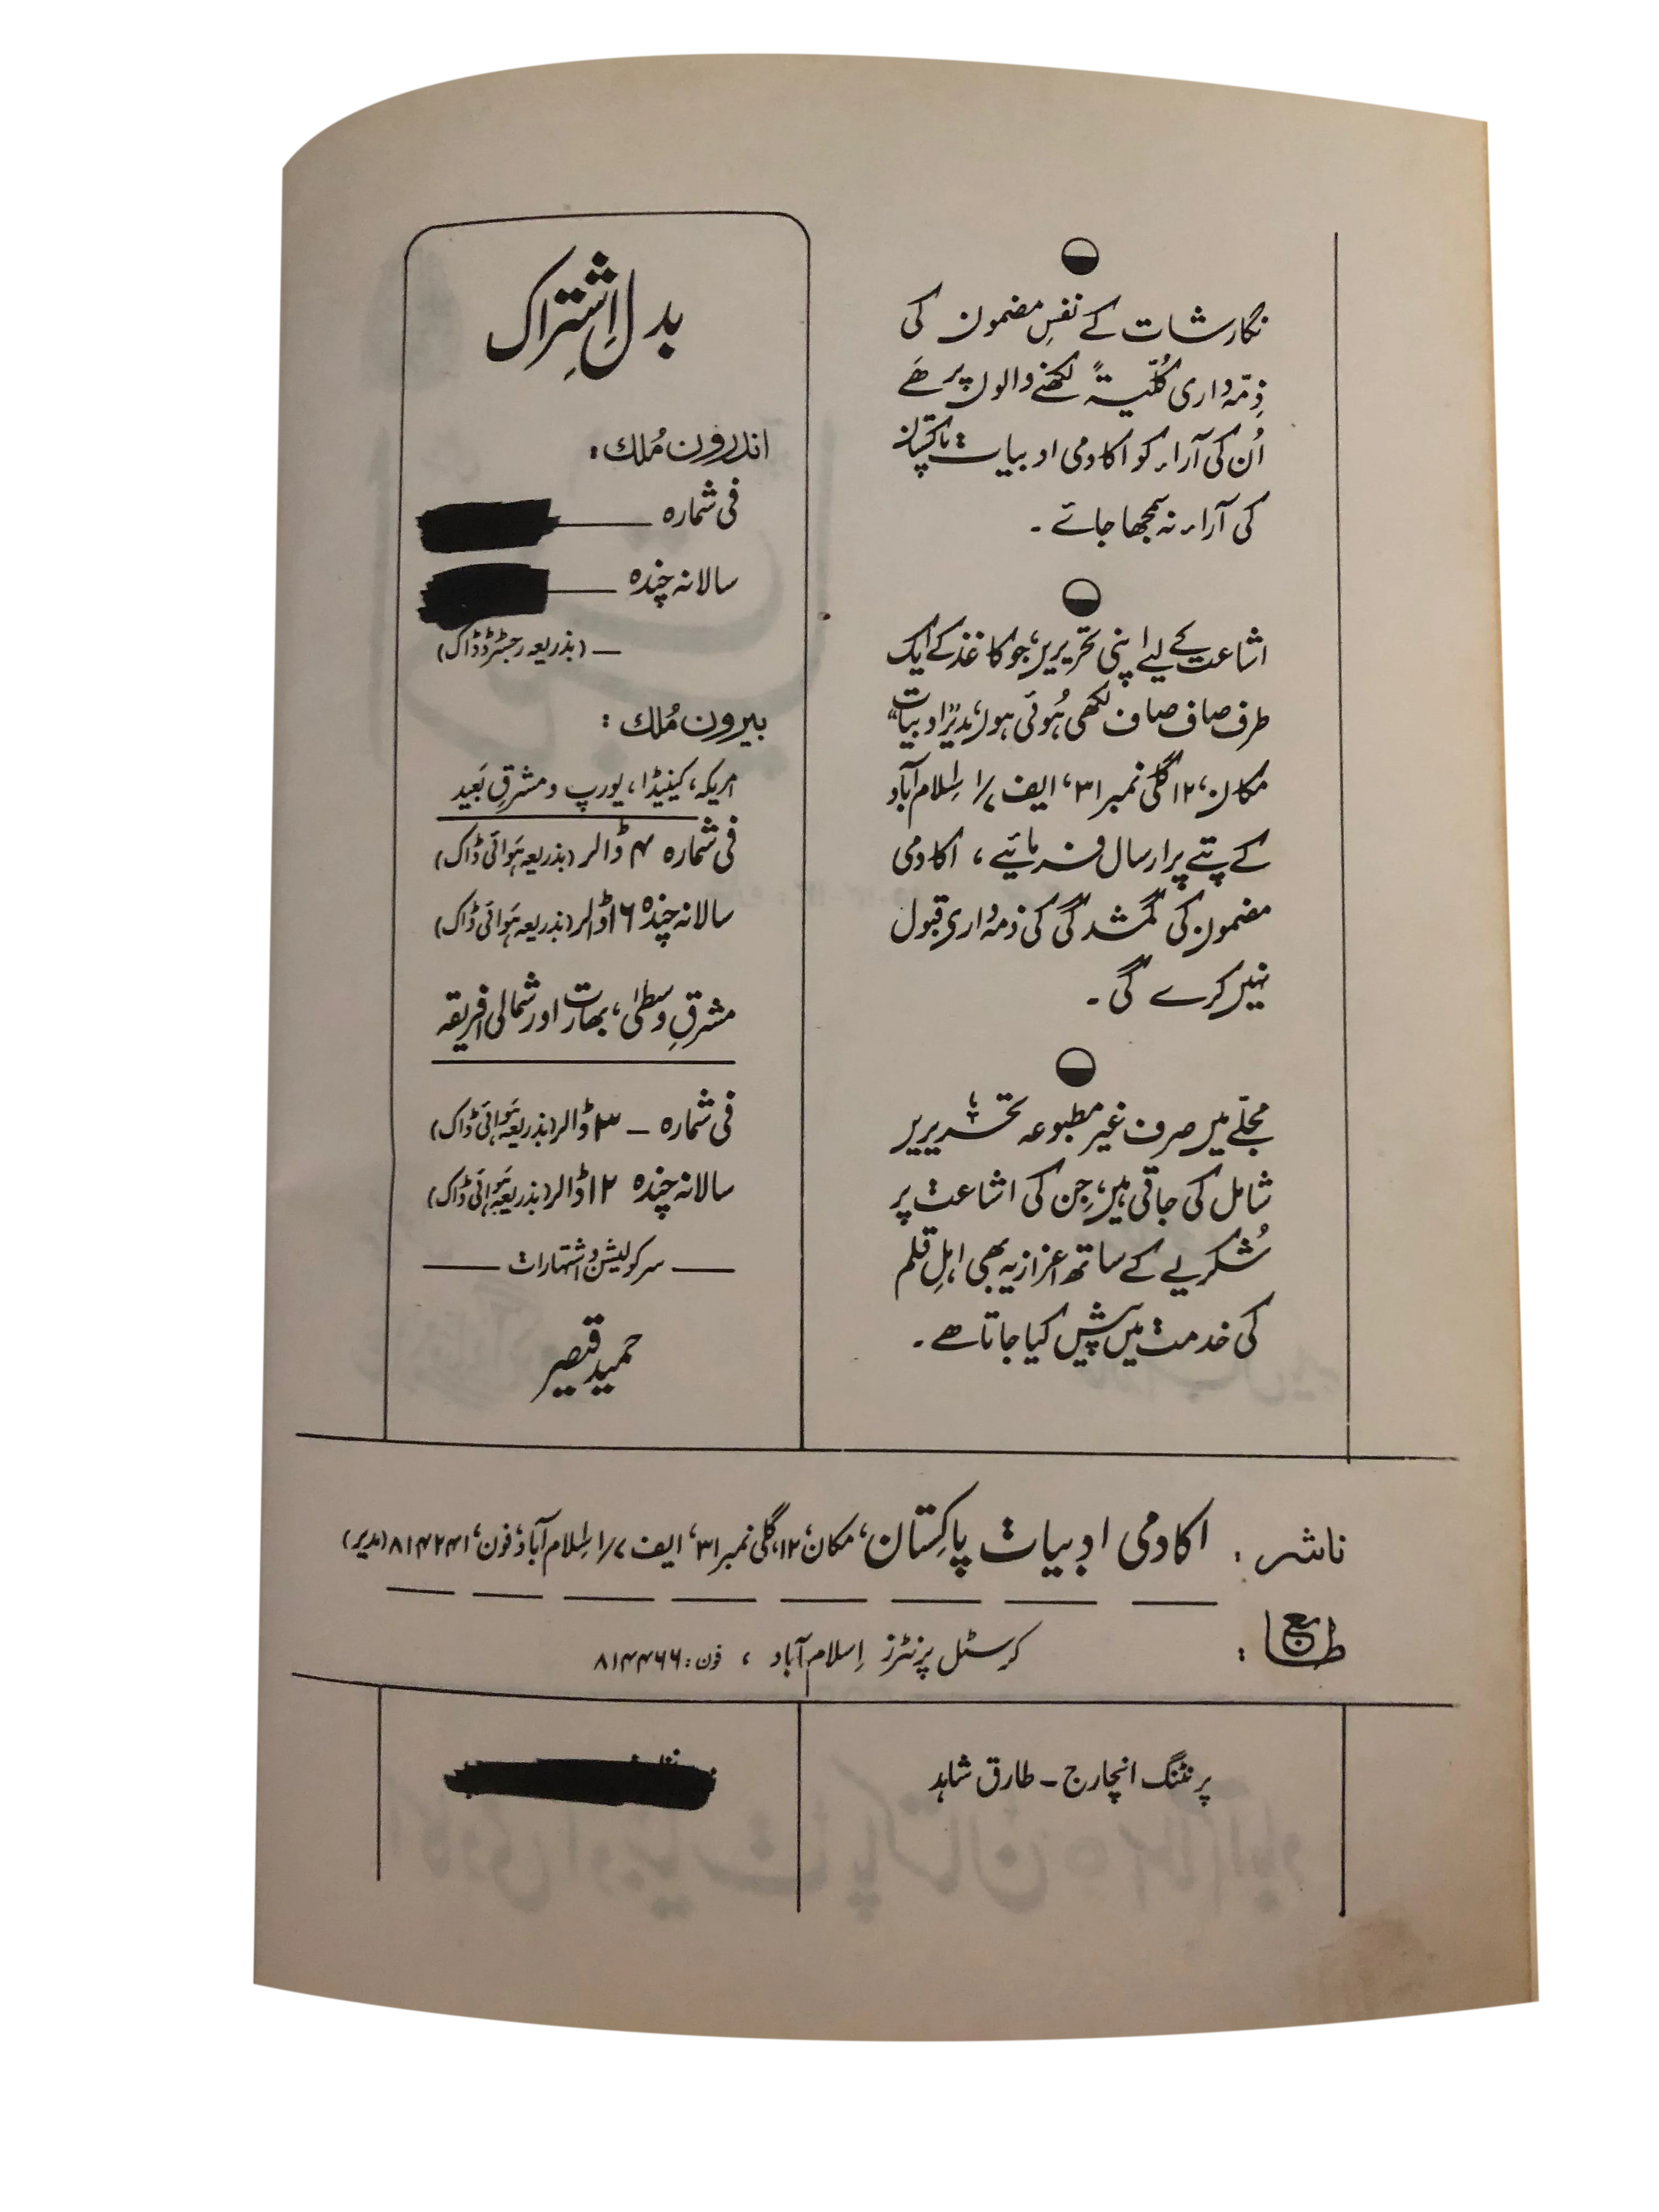 نگارشات کے نفسِ مضمون کی
ذِمّہ داری کُلّیۃً لکھنے والوں پر ھَے
اُن کی آراء کو اکادمی ادبیات پاکستان
کی آراء نہ سمجھا جائے ۔
اشاعت کے لیے اپنی تحریریں، جو کاغذ کے ایک
طرف صاف صاف لکھی ہُوئی ہوں، مدیر "ادبیات"
مکان، ۱۲ گلی نمبر ۳۱، ایف ۷/۱ اِسلام آباد
کے پتے پر ارسال فرمائیے ، اکادمی
مضمون کی گمشدگی کی ذمہ داری قبول
نہیں کرے گی ۔
مجلّے میں صرف غیر مطبوعہ تحریریں
شامل کی جاتی ہیں، جِن کی اشاعت پر
شُکریے کے ساتھ اعزازیہ بھی اہلِ قلم
کی خدمت میں پیش کیا جاتا ھے ۔
بدلِ اِشتِراک
اندرون مُلک :
فی شمارہ ــــ
سالانہ چندہ ــــ
ــ (بذریعہ رجسٹرڈ ڈاک)
بیرون مُلک :
امریکہ، کینیڈا، یورپ و مشرقِ بَعید
فی شمارہ ۴ ڈالر (بذریعہ ہَوائی ڈاک)
سالانہ چندہ ۱۶ ڈالر (بذریعہ ہَوائی ڈاک)
مشرقِ وسطیٰ، بھارت اور شمالی افریقہ
فی شمارہ ــ ۳ ڈالر (بذریعہ ہَوائی ڈاک)
سالانہ چندہ ۱۲ ڈالر (بذریعہ ہَوائی ڈاک)
ــــ سرکولیشن و اشتہارات ــــ
حمید قیصر
ناشر : اکادمی ادبیات پاکِستان، مکان، ۱۲، گلی نمبر ۳۱، ایف ۷/۱ اِسلام آباد، فون، ۸۱۴۲۴۱ (مدیر)
طابع : کرسٹل پرنٹرز اِسلام آباد ، فون : ۸۱۴۴۶۶
پرنٹنگ انچارج ــ طارق شاہد